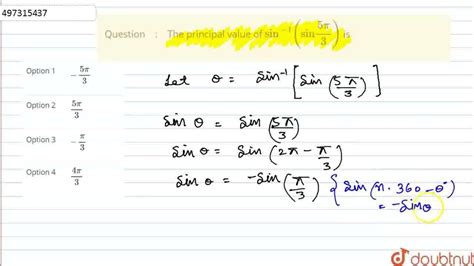 497315437
Question : The principal value of sin⁻¹(sin 5π/3) is
Option 1 -5π/3
Option 2 5π/3
Option 3 -π/3
Option 4 4π/3
Let θ = Sin⁻¹[Sin(5π/3)]
Sin θ = Sin(5π/3)
Sin θ = Sin(2π - π/3)
Sin θ = -Sin(π/3) { Sin(n·360-θ)
= -Sinθ
doubtnut